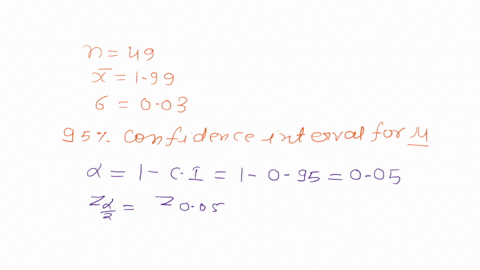 n = 49
x̄ = 1.99
σ = 0.03
95% Confidence interval for μ
α = 1 - C.I = 1 - 0.95 = 0.05
Z α/2 = Z 0.05